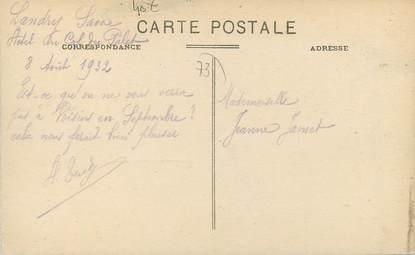 Landry Savoie
40 €
CARTE POSTALE
Hôtel du Col du Palet
CORRESPONDANCE
ADRESSE
8 Août 1932
73
Est-ce qu'on ne vous verra
pas à Voisins en Septembre ?
cela nous ferait bien plaisir
Mademoiselle
Jeanne